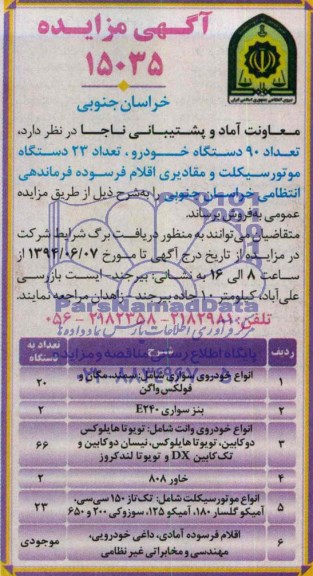 آگهی مزایده
۱۵۰۳۵
خراسان جنوبی
معاونت آماد و پشتیبانی ناجا در نظر دارد،
تعداد ۹۰ دستگاه خودرو، تعداد ۲۳ دستگاه
موتورسیکلت و مقادیری اقلام فرسوده فرماندهی
انتظامی خراسان جنوبی را به‌شرح ذیل از طریق مزایده
عمومی به‌فروش برساند.
متقاضیان می‌توانند به منظور دریافت برگ شرایط شرکت
در مزایده از تاریخ درج آگهی تا مورخ ۱۳۹۴/۰۶/۰۷ از
ساعت ۸ الی ۱۶ به نشانی: بیرجند- ایست بازرسی
علی‌آباد، کیلومتر ۱۰ جاده بیرجند - زاهدان مراجعه نمایند.
ParsNamadData
تلفن: ۲۱۸۲۹۸۱-۲۱۸۲۳۵۸-۰۵۶
پایگاه اطلاع رسانی مناقصه و مزایده
ردیف شرح تعداد به دستگاه
۱ انواع خودروی سواری شامل: سمند، پیکان و فولکس واگن ۲۰
۲ بنز سواری E۲۴۰ ۲
۳ انواع خودروی وانت شامل: تویوتا هایلوکس دوکابین، تویوتا هایلوکس، نیسان دوکابین و تک کابین DX و تویوتا لندکروز ۶۶
۴ خاور ۸۰۸ ۲
۵ انواع موتورسیکلت شامل: تک‌تاز ۱۵۰ سی‌سی، آمیکو گلسار ۱۸۰، آمیکو ۱۲۵، سوزوکی ۲۰۰ و ۶۵۰ ۲۳
۶ اقلام فرسوده آمادی، داغی خودرویی، مهندسی و مخابراتی غیر نظامی موجودی